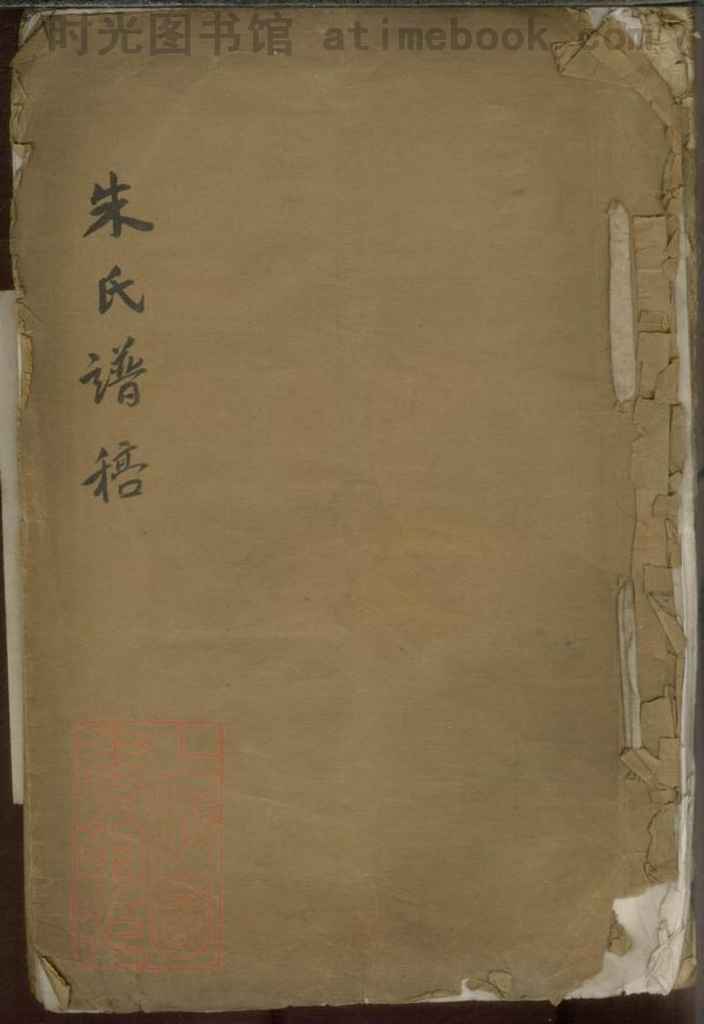 时光图书馆 atimebook.com
朱氏譜稿